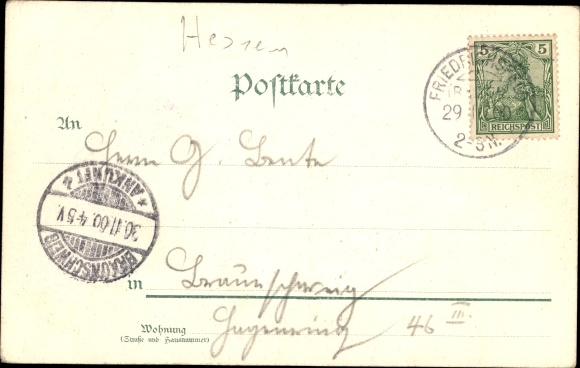 Hessen
Postkarte
5 5
REICHSPOST
29
2-3 N.
An
Herrn G. Bente
* ANKUNFT 2 *
30.11.00. 4-5 V.
BRAUNSCHWEIG
in Braunschweig
Wohnung
(Straße und Hausnummer)
Hagenring 46 III.